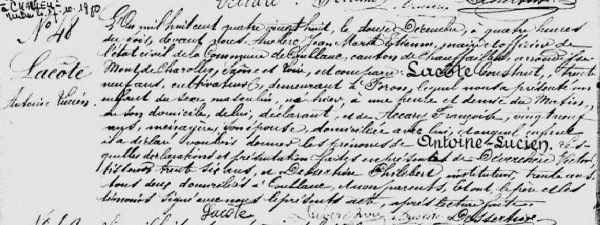 à
N.º 48
Lacôte
Antoine Lucien.
L'An mil huit cent quatre vingt huit, le douze Décembre, à quatre heures
du soir, devant nous, Jean Marie Etienne, maire et officier de
l'état civil de la Commune de Coublanc, canton de Chauffailles, arrondisse-
ment de Charolles, Saône et Loire, est comparu Lacôte Constant, trente
neuf ans, cultivateur, demeurant à lequel nous a présenté un
enfant du sexe masculin, né hier, à une heure et demie du matin,
en son domicile, de lui, déclarant, et de Françoise, vingt neuf
ans, ménagère, son épouse, domiciliée avec lui, auquel enfant
il a déclaré vouloir donner les prénoms de Antoine-Lucien. Les-
quelles déclarations et présentation faites en présence de
trente six ans, et Philibert, instituteur, trente ans,
tous deux domiciliés à Coublanc, et non parents, et ont, le père et les
témoins signé avec nous le présent acte, après lecture faite.
Lacôte